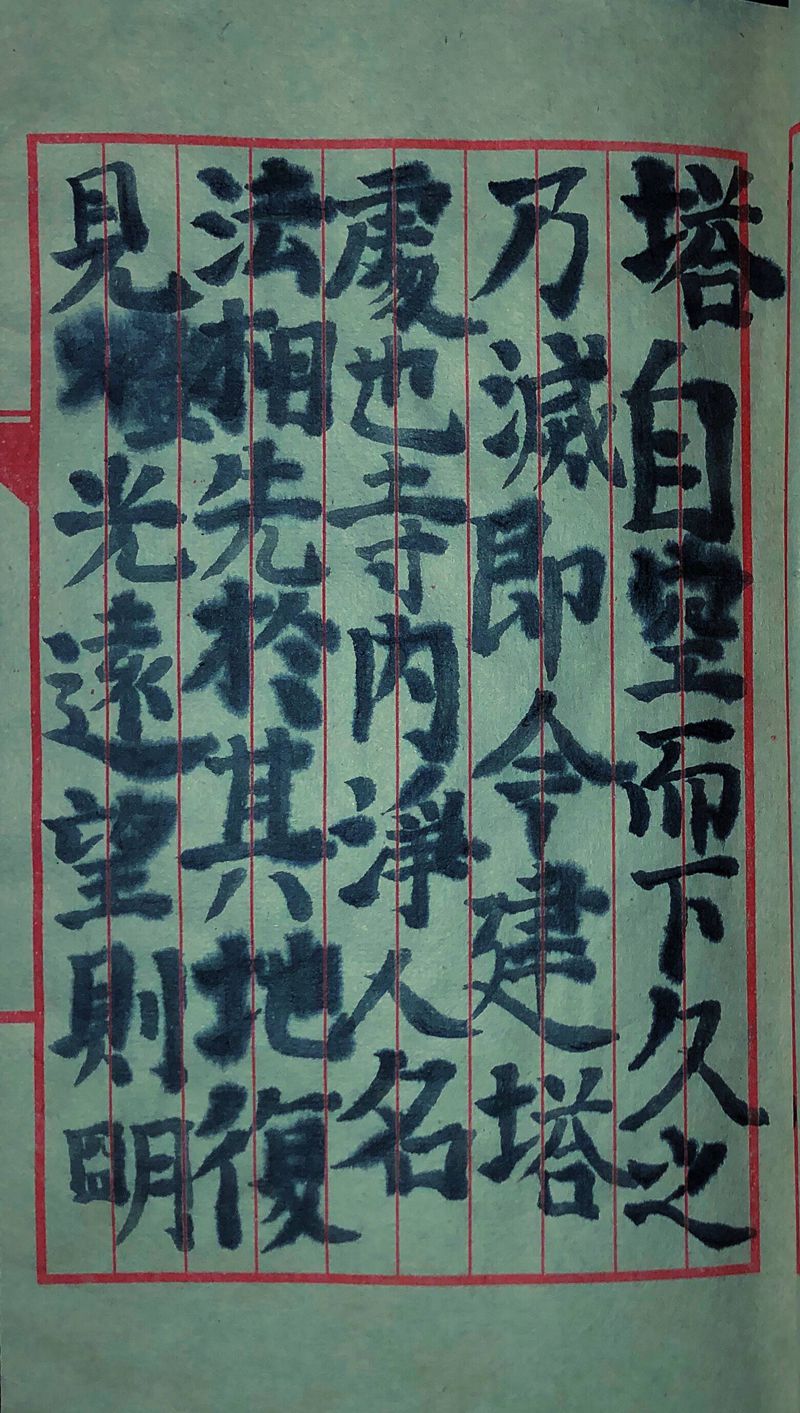 塔自空而下久之
乃滅即今建塔
處也寺內淨人名
法相先於其地復
見燈光遠望則明